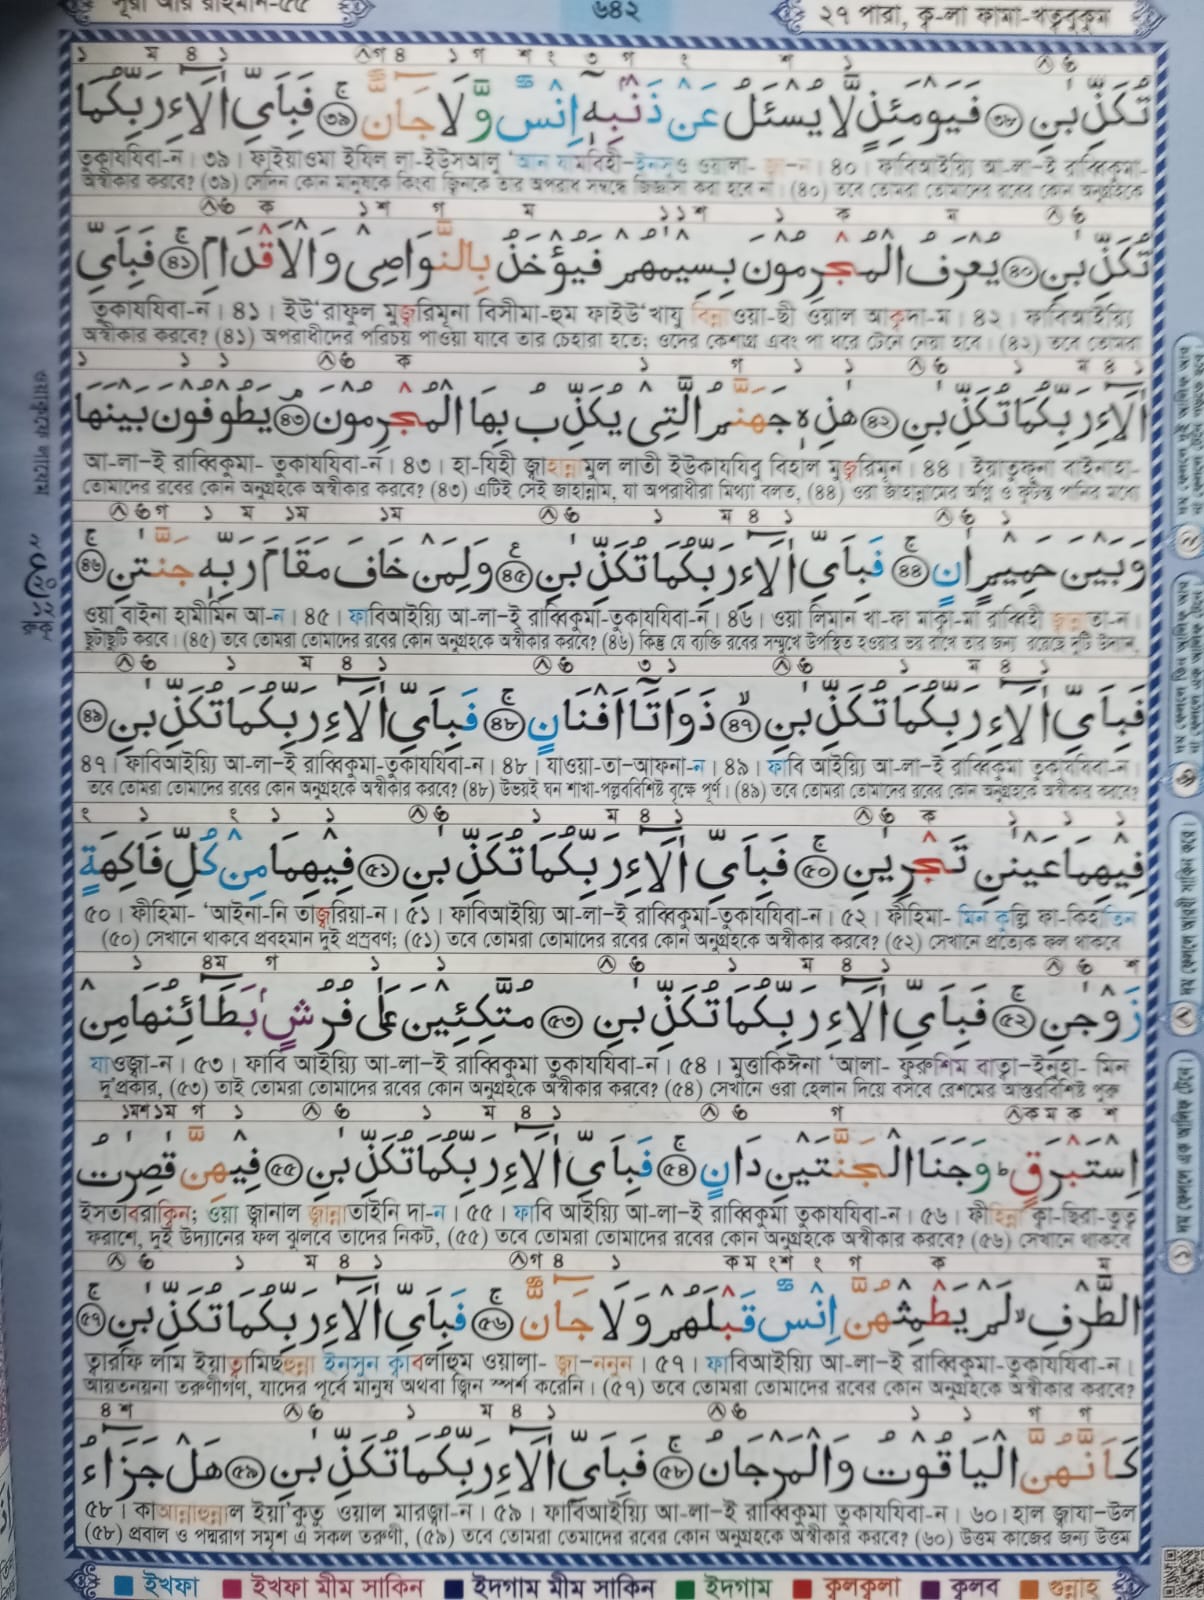 সূরা আর রাহমান-৫৫ ৬৪২ ২৭ পারা, ক্ব-লা ফামা-খত্ববুকুম
تُكَذِّبٰنِ ﴿৩৮﴾ فَيَوْمَئِذٍ لَّا يُسْـَٔلُ عَنْ ذَنْۢبِهٖٓ اِنْسٌ وَّلَا جَآنٌّ ﴿৩৯﴾ فَبِاَيِّ اٰلَآءِ رَبِّكُمَا
তুকাযযিবা-ন। ৩৯। ফাইয়াওমা ইযিল লা-ইউসআলু ‘আন যামবিহী-ইনসুও ওয়ালা- জ্বা-ন। ৪০। ফাবিআইয়্যি আ-লা-ই রাব্বিকুমা-
অস্বীকার করবে? (৩৯) সেদিন কোন মানুষকে কিংবা জ্বিনকে তার অপরাধ সম্বন্ধে জিজ্ঞাসা করা হবে না। (৪০) তবে তোমরা তোমাদের রবের কোন অনুগ্রহকে
تُكَذِّبٰنِ ﴿৪০﴾ يُعْرَفُ الْمُجْرِمُوْنَ بِسِيْمٰهُمْ فَيُؤْخَذُ بِالنَّوَاصِيْ وَالْاَقْدَامِ ﴿৪১﴾ فَبِاَيِّ
তুকাযযিবা-ন। ৪১। ইউ‘রাফুল মুজ্বরিমূনা বিসীমা-হুম ফাইউ‘খাযু বিন্না ওয়া-ছী ওয়াল আক্বদা-ম। ৪২। ফাবিআইয়্যি
অস্বীকার করবে? (৪১) অপরাধীদের পরিচয় পাওয়া যাবে তার চেহারা হতে; ওদের কেশাগ্র এবং পা ধরে টেনে নেয়া হবে। (৪২) তবে তোমরা
اٰلَآءِ رَبِّكُمَا تُكَذِّبٰنِ ﴿৪২﴾ هٰذِهٖ جَهَنَّمُ الَّتِيْ يُكَذِّبُ بِهَا الْمُجْرِمُوْنَ ﴿৪৩﴾ يَطُوْفُوْنَ بَيْنَهَا
আ-লা-ই রাব্বিকুমা- তুকাযযিবা-ন। ৪৩। হা-যিহী জ্বাহান্নামুল লাতী ইউকাযযিবু বিহাল মুজ্বরিমূন। ৪৪। ইয়াতূফূনা বাইনাহা-
তোমাদের রবের কোন অনুগ্রহকে অস্বীকার করবে? (৪৩) এটিই সেই জাহান্নাম, যা অপরাধীরা মিথ্যা বলত, (৪৪) ওরা জাহান্নামের অগ্নি ও ফুটন্ত পানির মধ্যে
وَبَيْنَ حَمِيْمٍ اٰنٍ ﴿৪৪﴾ فَبِاَيِّ اٰلَآءِ رَبِّكُمَا تُكَذِّبٰنِ ﴿৪৫﴾ وَلِمَنْ خَافَ مَقَامَ رَبِّهٖ جَنَّتٰنِ ﴿৪৬﴾
ওয়া বাইনা হামীমিন আ-ন। ৪৫। ফাবিআইয়্যি আ-লা-ই রাব্বিকুমা-তুকাযযিবা-ন। ৪৬। ওয়া লিমান খা-ফা মাক্বা-মা রাব্বিহী জ্বান্নাতা-ন।
ছুটাছুটি করবে। (৪৫) তবে তোমরা তোমাদের রবের কোন অনুগ্রহকে অস্বীকার করবে? (৪৬) কিন্তু যে ব্যক্তি রবের সম্মুখে উপস্থিত হওয়ার ভয় রাখে তার জন্য রয়েছে দুটি উদ্যান,
فَبِاَيِّ اٰلَآءِ رَبِّكُمَا تُكَذِّبٰنِ ﴿৪৭﴾ ذَوَاتَآ اَفْنَانٍ ﴿৪৮﴾ فَبِاَيِّ اٰلَآءِ رَبِّكُمَا تُكَذِّبٰنِ ﴿৪৯﴾
৪৭। ফাবিআইয়্যি আ-লা-ই রাব্বিকুমা-তুকাযযিবা-ন। ৪৮। যাওয়া-তা-আফনা-ন। ৪৯। ফাবি আইয়্যি আ-লা-ই রাব্বিকুমা তুকাযযিবা-ন।
তবে তোমরা তোমাদের রবের কোন অনুগ্রহকে অস্বীকার করবে? (৪৮) উভয়ই ঘন শাখা-পল্লববিশিষ্ট বৃক্ষে পূর্ণ। (৪৯) তবে তোমরা তোমাদের রবের কোন অনুগ্রহকে অস্বীকার করবে?
فِيْهِمَا عَيْنٰنِ تَجْرِيٰنِ ﴿৫০﴾ فَبِاَيِّ اٰلَآءِ رَبِّكُمَا تُكَذِّبٰنِ ﴿৫১﴾ فِيْهِمَا مِنْ كُلِّ فَاكِهَةٍ
৫০। ফীহিমা- ‘আইনা-নি তাজ্বরিয়া-ন। ৫১। ফাবিআইয়্যি আ-লা-ই রাব্বিকুমা-তুকাযযিবা-ন। ৫২। ফীহিমা- মিন কুল্লি ফা-কিহাতিন
(৫০) সেখানে থাকবে প্রবহমান দুই প্রস্রবণ; (৫১) তবে তোমরা তোমাদের রবের কোন অনুগ্রহকে অস্বীকার করবে? (৫২) সেখানে প্রত্যেক ফল থাকবে
زَوْجٰنِ ﴿৫২﴾ فَبِاَيِّ اٰلَآءِ رَبِّكُمَا تُكَذِّبٰنِ ﴿৫৩﴾ مُتَّكِـِٕيْنَ عَلٰى فُرُشٍۢ بَطَآئِنُهَا مِنْ
যাওজ্বা-ন। ৫৩। ফাবি আইয়্যি আ-লা-ই রাব্বিকুমা তুকাযযিবা-ন। ৫৪। মুত্তাকিঈনা ‘আলা- ফুরুশিম বাত্বা-ইনুহা- মিন
দু’প্রকার, (৫৩) তাই তোমরা তোমাদের রবের কোন অনুগ্রহকে অস্বীকার করবে? (৫৪) সেখানে ওরা হেলান দিয়ে বসবে রেশমের আস্তরবিশিষ্ট পুরু
اِسْتَبْرَقٍ ؕ وَجَنَا الْجَنَّتَيْنِ دَانٍ ﴿৫৪﴾ فَبِاَيِّ اٰلَآءِ رَبِّكُمَا تُكَذِّبٰنِ ﴿৫৫﴾ فِيْهِنَّ قٰصِرٰتُ
ইসতাবরাক্বিন; ওয়া জ্বানাল জ্বান্নাতাইনি দা-ন। ৫৫। ফাবি আইয়্যি আ-লা-ই রাব্বিকুমা তুকাযযিবা-ন। ৫৬। ফীহিন্না ক্বা-ছিরা-তুত্ব
ফরাশে, দুই উদ্যানের ফল ঝুলবে তাদের নিকট, (৫৫) তবে তোমরা তোমাদের রবের কোন অনুগ্রহকে অস্বীকার করবে? (৫৬) সেখানে থাকবে
الطَّرْفِ ۙ لَمْ يَطْمِثْهُنَّ اِنْسٌ قَبْلَهُمْ وَلَا جَآنٌّ ﴿৫৬﴾ فَبِاَيِّ اٰلَآءِ رَبِّكُمَا تُكَذِّبٰنِ ﴿৫৭﴾
ত্বারফি লাম ইয়াত্বমিছহুন্না ইনসুন ক্বাবলাহুম ওয়ালা- জ্বা-ননুন। ৫৭। ফাবিআইয়্যি আ-লা-ই রাব্বিকুমা-তুকাযযিবা-ন।
আয়তনয়না তরুণীগণ, যাদের পূর্বে মানুষ অথবা জ্বিন স্পর্শ করেনি। (৫৭) তবে তোমরা তোমাদের রবের কোন অনুগ্রহকে অস্বীকার করবে?
كَاَنَّهُنَّ الْيَاقُوْتُ وَالْمَرْجَانُ ﴿৫৮﴾ فَبِاَيِّ اٰلَآءِ رَبِّكُمَا تُكَذِّبٰنِ ﴿৫৯﴾ هَلْ جَزَآءُ
৫৮। কাআন্নাহুন্নাল ইয়া’ক্বুতু ওয়াল মারজ্বা-ন। ৫৯। ফাবিআইয়্যি আ-লা-ই রাব্বিকুমা তুকাযযিবা-ন। ৬০। হাল জ্বাযা-উল
(৫৮) প্রবাল ও পদ্মরাগ সদৃশ এ সকল তরুণী, (৫৯) তবে তোমরা তোমাদের রবের কোন অনুগ্রহকে অস্বীকার করবে? (৬০) উত্তম কাজের জন্য উত্তম
ইখফা ইখফা মীম সাকিন ইদগাম মীম সাকিন ইদগাম ক্বলক্বলা ক্বলব গুন্নাহ
ওয়াকফে লাযেম